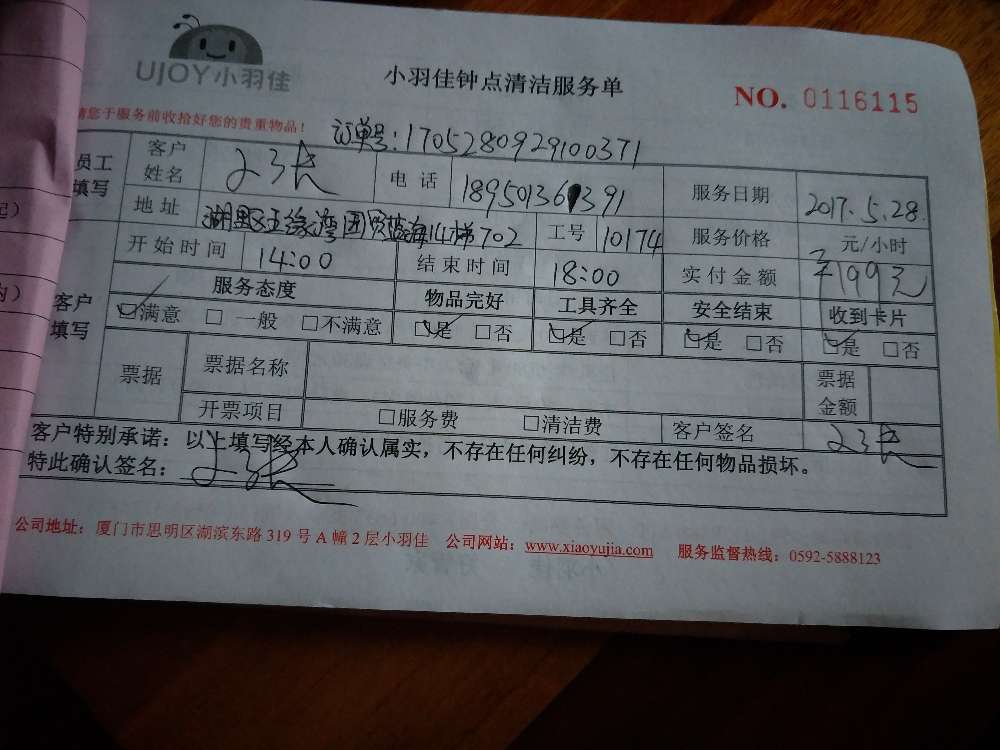 UJOY小羽佳
小羽佳钟点清洁服务单
NO. 0116115
请您于服务前收拾好您的贵重物品！
订单号：170528092910037​1
员工填写 客户姓名 电话 189501361391 服务日期 2017.5.28.
地址 湖里区五缘湾 蓝海14梯702 工号 10174 服务价格 元/小时
开始时间 14:00 结束时间 18:00 实付金额 ¥199元
客户填写 服务态度 物品完好 工具齐全 安全结束 收到卡片
☑满意 □一般 □不满意 ☑是 □否 ☑是 □否 ☑是 □否 ☑是 □否
票据 票据名称 票据金额
开票项目 □服务费 □清洁费 客户签名
客户特别承诺：以上填写经本人确认属实，不存在任何纠纷，不存在任何物品损坏。
特此确认签名：
公司地址：厦门市思明区湖滨东路319号A幢2层小羽佳 公司网站：www.xiaoyujia.com 服务监督热线：0592-5888123